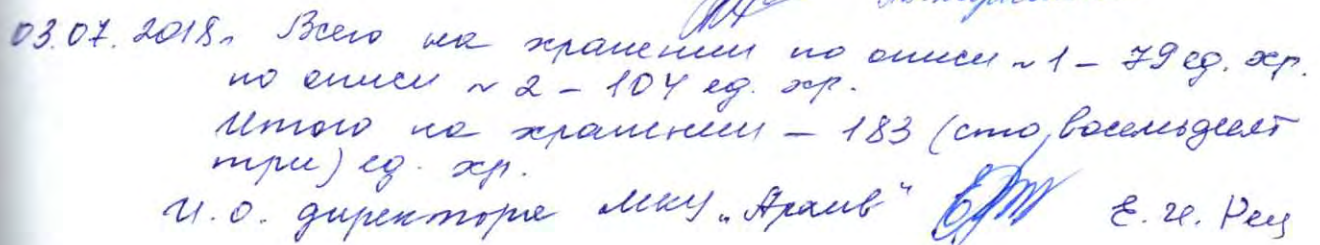 03.07.2018г Всего на хранении по описи №1 – 79 ед. хр.
по описи №2 – 104 ед. хр.
Итого на хранении – 183 (сто восемьдесят
три) ед. хр.
И.О. директора МКУ „Архив" Е.И. Рец